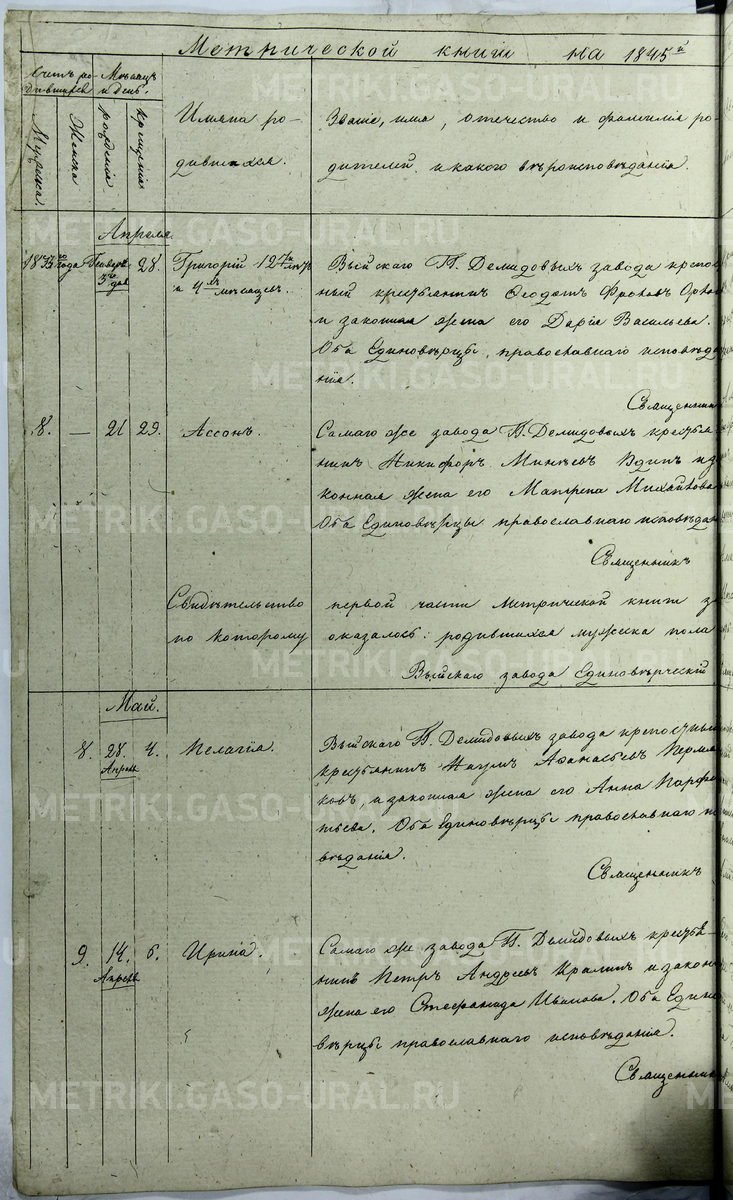 Метрической книги на 1845й
Счетъ родившихся
Мѣсяцъ и день.
Мужеска.
Женска
рожденія
крещенія
Имяна родившихся.
Званіе, имя, отечество и фамилія ро-
дителей, и какого вѣроисповѣданія.
Апрель.
года 28. Григорій 12ти лѣтъ
и 4хъ мѣсяцевъ.
Выйскаго Г. Демидовыхъ завода крепос-
ный крестьянинъ Ѳеодотъ
и законная жена его Дарія Васильева.
Оба Единовѣрцы, православнаго исповѣда
нія.
Священникъ
8. — 21 29. Ассонъ.
Самаго же завода Г. Демидовыхъ крестья-
нинъ Никифоръ Минѣевъ
конная жена его Матрена Михайлова
Оба Единовѣрцы православнаго исповѣдан
Священникъ
Свидѣтельство первой части метрической книги
по которому оказалось: родившихся мужеска пола
Выйскаго завода Единовѣрческій
Май.
8. 28. 4. Пелагія.
Апреля
Выйскаго Г. Демидовыхъ завода крепостный
крестьянинъ Наумъ Аѳанасьевъ Перми
ковъ, и законная жена его Анна Парфе
тьева. Оба Единовѣрцы православнаго
вѣданія.
Священникъ
9. 14. 6. Ирина.
Апреля
Самаго же завода Г. Демидовыхъ крестья-
нинъ Петръ Андреевъ и закон
жена его Стефанида Иванова. Оба Едино
вѣрцы православнаго исповѣданія.
Священник
METRIKI.GASO-URAL.RU